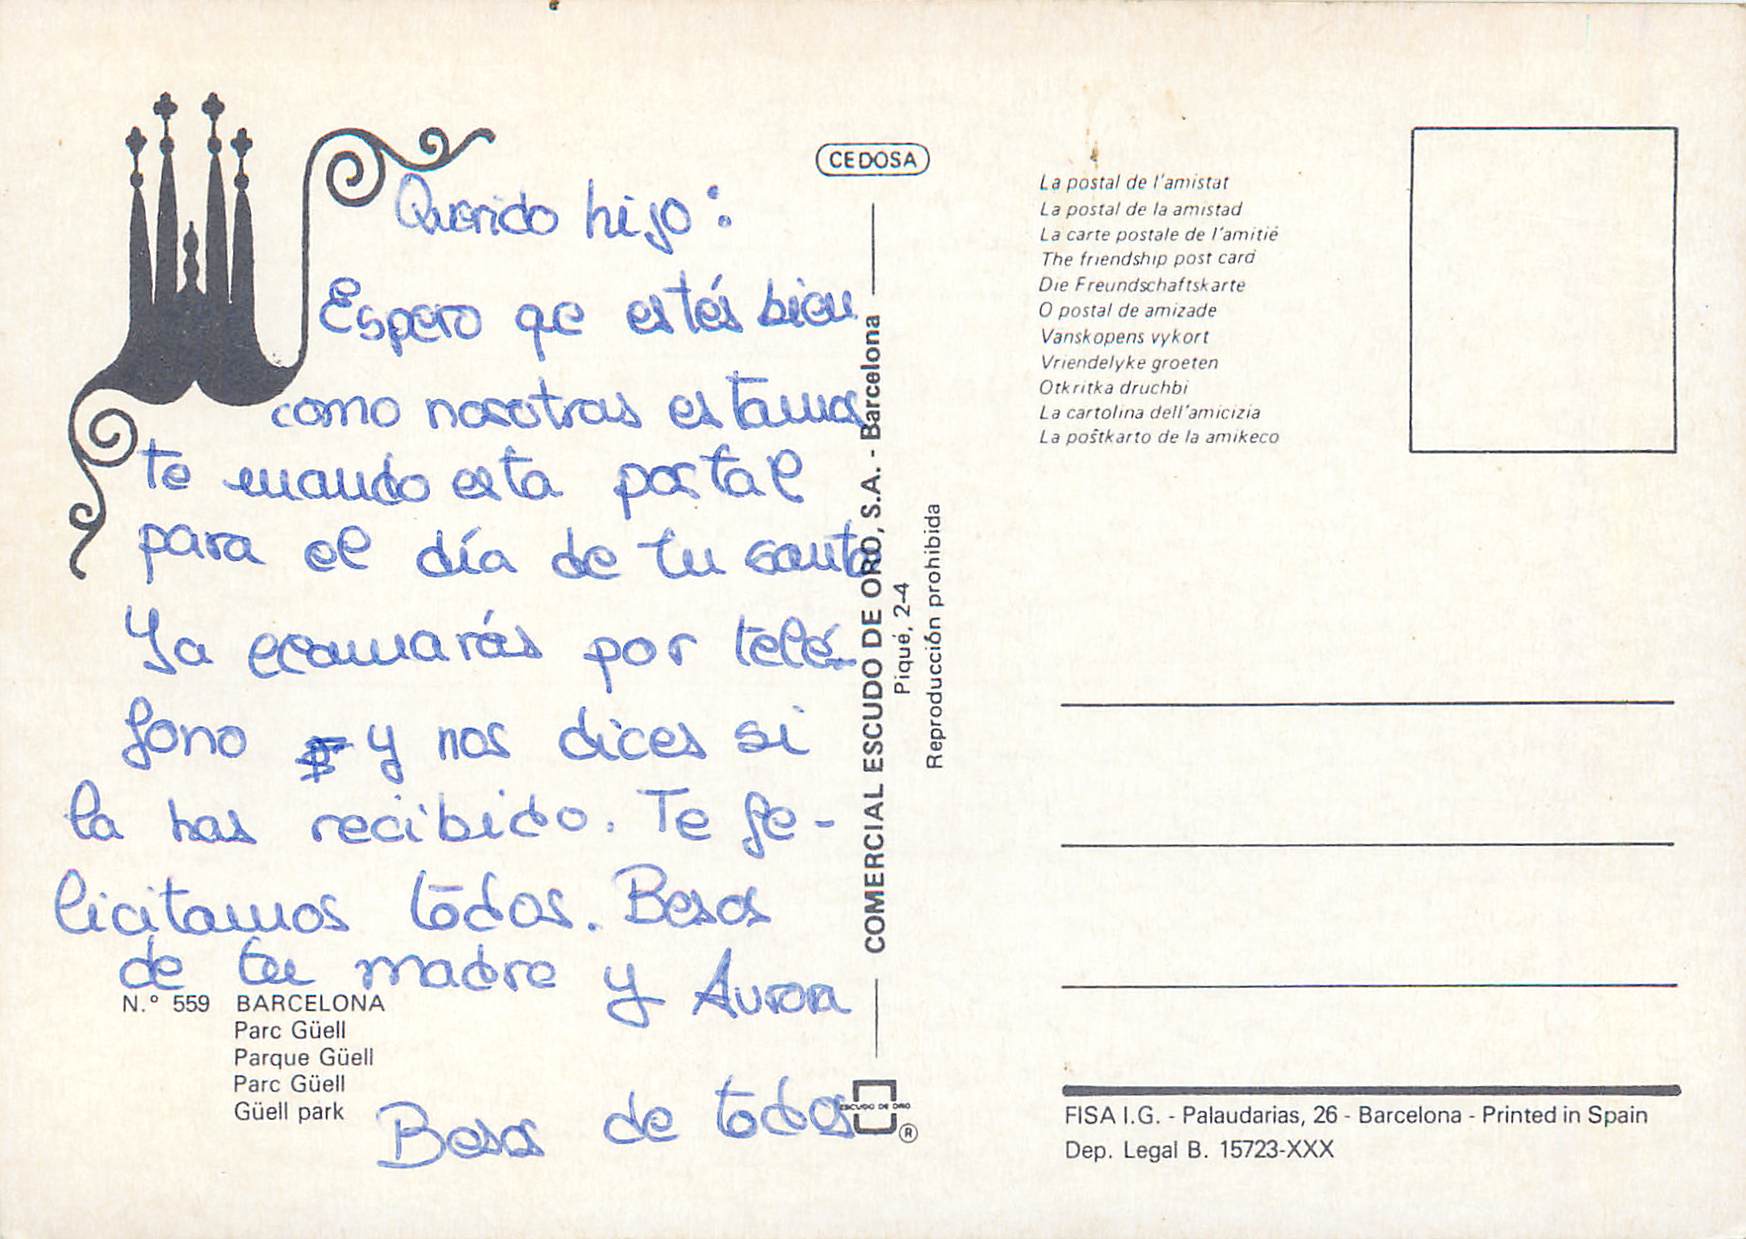 Querido hijo:
Espero qe estés bien
como nosotras estamos
te mando esta postal
para el día de tu santo
Ya llamarás por telé-
fono y nos dices si
la has recibido. Te fe-
licitamos todos. Besos
de tu madre y Aurora
Besos de todos
N.º 559 BARCELONA
Parc Güell
Parque Güell
Parc Güell
Güell park
CEDOSA
COMERCIAL ESCUDO DE ORO, S.A. - Barcelona
Piqué, 2-4
Reproducción prohibida
ESCUDO DE ORO
®
La postal de l'amistat
La postal de la amistad
La carte postale de l'amitié
The friendship post card
Die Freundschaftskarte
O postal de amizade
Vanskopens vykort
Vriendelyke groeten
Otkritka druchbi
La cartolina dell'amicizia
La poŝtkarto de la amikeco
FISA I.G. - Palaudarias, 26 - Barcelona - Printed in Spain
Dep. Legal B. 15723-XXX